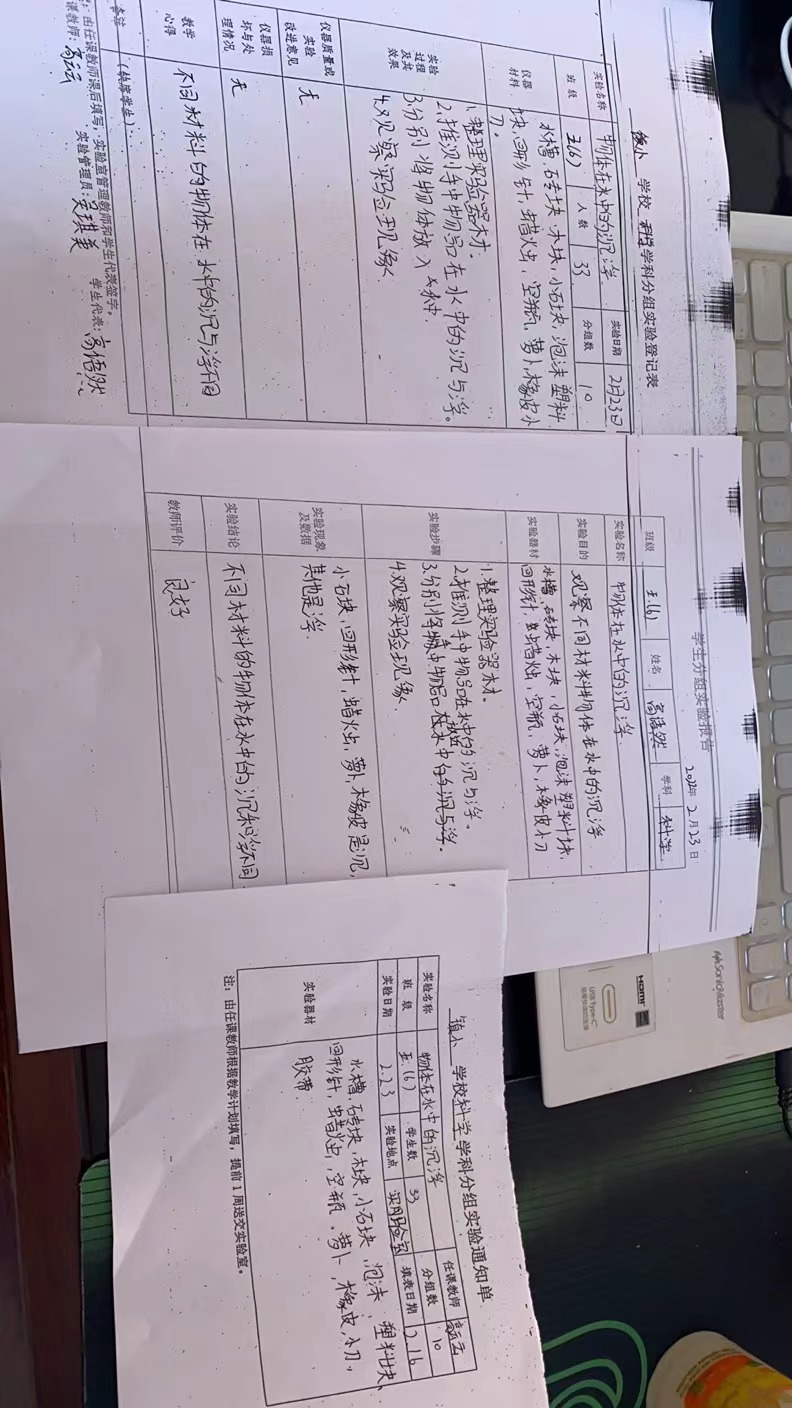 镇小 学校 科学 学科分组实验登记表
实验名称 物体在水中的沉浮 实验日期 2月23日
班级 五(6) 人数 33 分组数 10
仪器材料 水槽，砖块，木块，小石块，泡沫塑料
块，回形针，蜡火虫，空瓶，萝卜，橡皮小
刀。
实验过程及其效果 1.整理实验器材。
2.推测手中物品在水中的沉与浮。
3.分别将物体放入水中.
4.观察实验现象
仪器质量或实验改进意见 无
仪器损坏与处理情况 无
教学心得 不同材料的物体在水中的沉与浮不同
备注 (缺席学生):
由任课教师课后填写，实验室管理教师和学生代表签字。
课教师: 高云 实验管理员: 吴琪美 学生代表: 高悟然
学生分组实验报告
2022年 2月23日
班级 五(6) 姓名 高悟然 学科 科学
实验名称 物体在水中的沉浮
实验目的 观察不同材料物体在水中的沉浮
实验器材 水槽，砖块，木块，小石块，泡沫塑料块
回形针，蜡火虫，空瓶，萝卜，橡皮小刀
实验步骤 1.整理实验器材。
2.推测手中物品在水中的沉与浮。
3.分别将手中物品放在水中
4.观察实验现象
实验现象及数据 小石块，回形针，蜡火虫，萝卜，橡皮是沉，
其他是浮.
实验结论 不同材料的物体在水中的沉和浮不同
教师评价 良好
镇小 学校科学学科分组实验通知单
任课教师 高云
实验名称 物体在水中的沉浮 分组数 10
班级 五(6) 学生数 33 填表日期 2.16
实验日期 2.23 实验地点 实验室
实验器材 水槽，砖块，木块，小石块，泡沫，塑料块、
回形针，蜡火虫，空瓶、萝卜，橡皮，小刀，
胶带
注：由任课教师根据教学计划填写，提前1周送交实验室。
SonicMaster
HDMI
USB Type-C